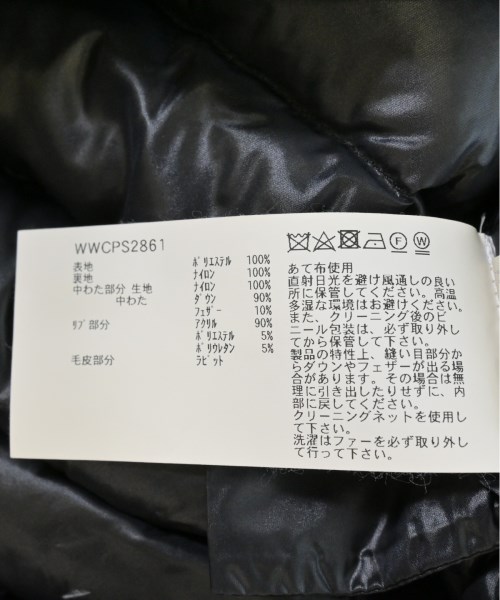 WWCPS2861
表地 ﾎﾟﾘｴｽﾃﾙ 100%
裏地 ﾅｲﾛﾝ 100%
中わた部分 生地 ﾅｲﾛﾝ 100%
中わた ﾀﾞｳﾝ 90%
ﾌｪｻﾞｰ 10%
ﾘﾌﾞ部分 ｱｸﾘﾙ 90%
ﾎﾟﾘｴｽﾃﾙ 5%
ﾎﾟﾘｳﾚﾀﾝ 5%
毛皮部分 ﾗﾋﾞｯﾄ
F W
あて布使用
直射日光を避け風通しの良い
所に保管してください。高温
多湿な環境はお避けください。
また、クリーニング後のビ
ニール包装は、必ず取り外し
てから保管して下さい。
製品の特性上、縫い目部分か
らダウンやフェザーが出る場
合があります。その場合は無
理に引き出したりせずに、内
部に戻してください。
クリーニングネットを使用し
て下さい。
洗濯はファーを必ず取り外し
て行って下さい。